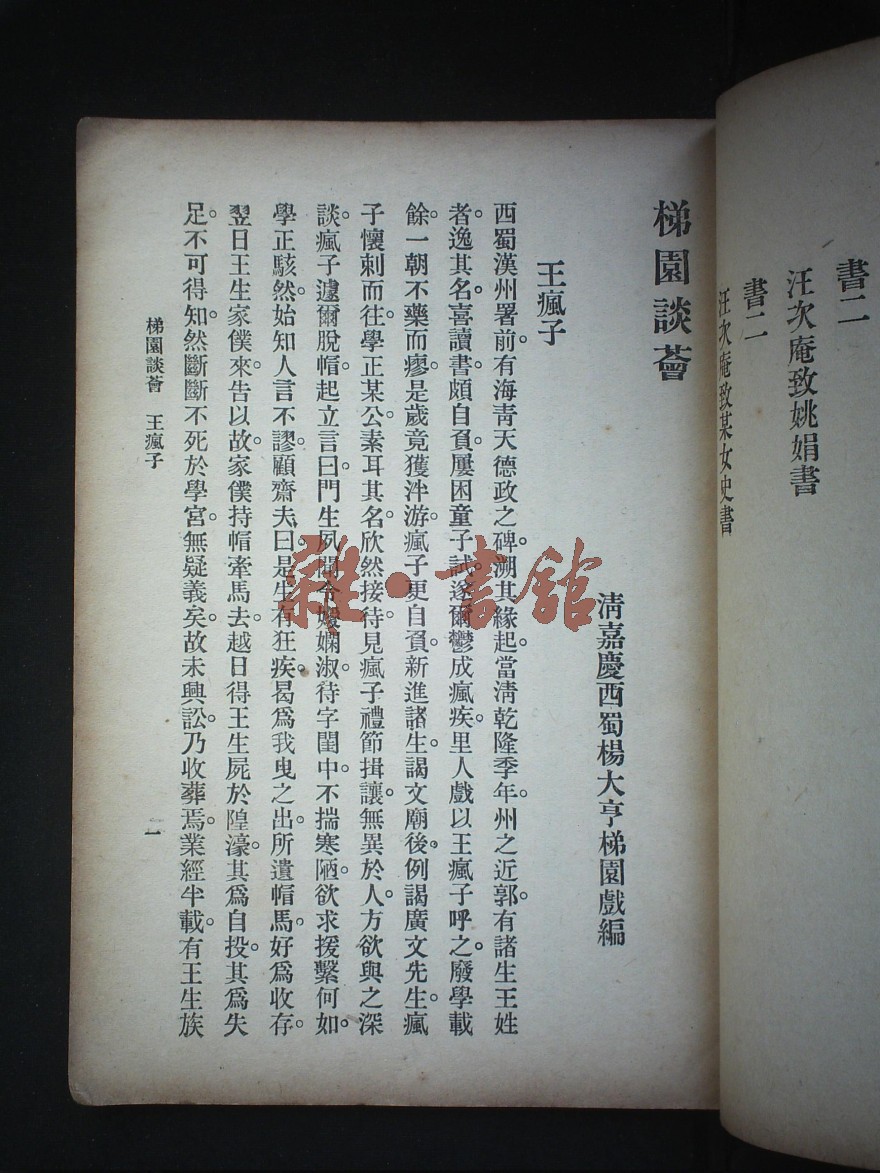 書二
汪次庵致姚娟書
書二
汪次庵致某女史書
梯園談薈
清嘉慶西蜀楊大亨梯園戲編
王瘋子
西蜀漢州署前。有海青天德政之碑。溯其緣起。當清乾隆季年。州之近郭。有諸生王姓
者。逸其名。喜讀書。頗自負。屢困童子試。遂爾鬱成瘋疾。里人戲以王瘋子呼之。廢學載
餘。一朝不藥而瘳。是歲竟獲泮游。瘋子更自負。新進諸生。謁文廟後。例謁廣文先生。瘋
子懷刺而往。學正某公。素耳其名。欣然接待。見瘋子禮節揖讓。無異於人。方欲與之深
談。瘋子遽爾脫帽起立言曰。門生夙聞令嬡嫻淑。待字閨中。不揣寒陋。欲求援繫何如。
學正駭然。始知人言不謬。顧齋夫曰。是生有狂疾。曷爲我曳之出。所遺帽馬。好爲收存。
翌日王生家僕來。告以故。家僕持帽牽馬去。越日得王生屍於隍濠。其爲自投。其爲失
足。不可得知。然斷斷不死於學宮。無疑義矣。故未興訟。乃收葬焉。業經半載。有王生族
梯園談薈 王瘋子
一
雜·書館